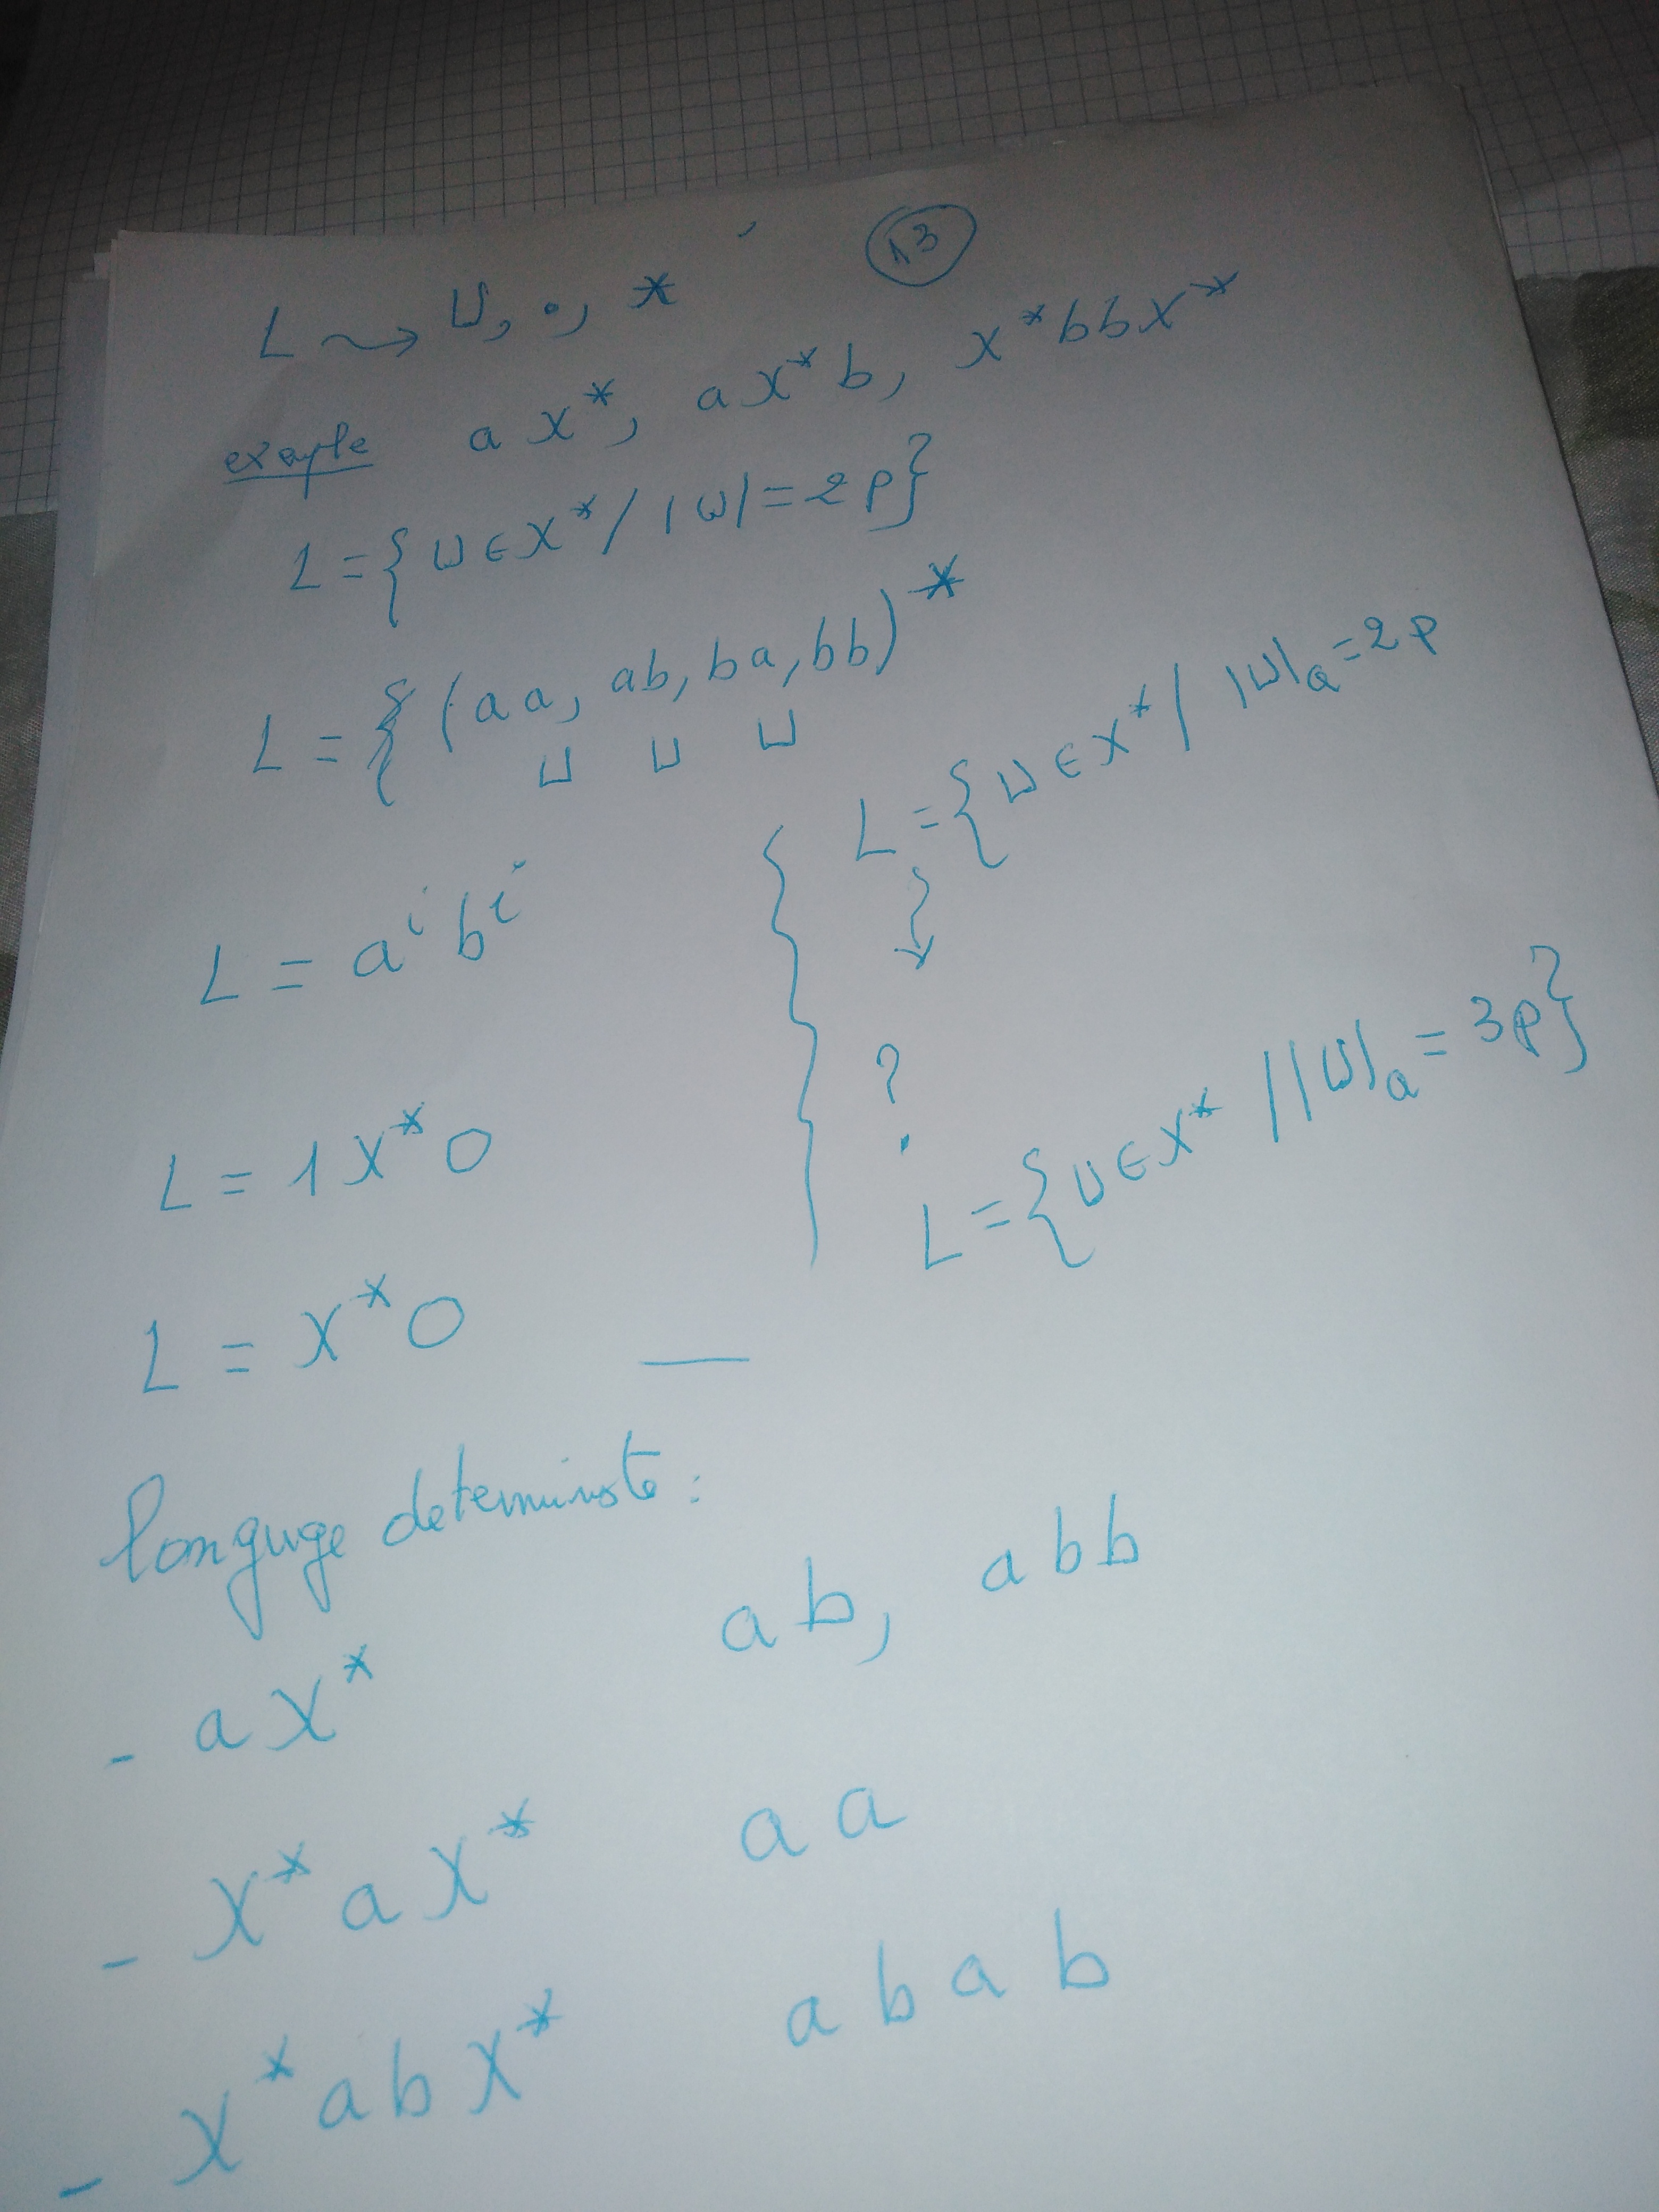 13
L ⇝ ∪, ., *
exaple aX*, aX*b, X*bbX*
L = { w ∈ X* / |w| = 2p}
L = { (aa, ab, ba, bb)*
∪ ∪ ∪
L = a^i b^i
L = 1X*0
L = X*0
{ L = { w ∈ X* / |w|_a = 2p
↓
?
L = { w ∈ X* / |w|_a = 3p}
longuge determinste :
- aX* ab, abb
- X*aX* aa
- X*abX* abab